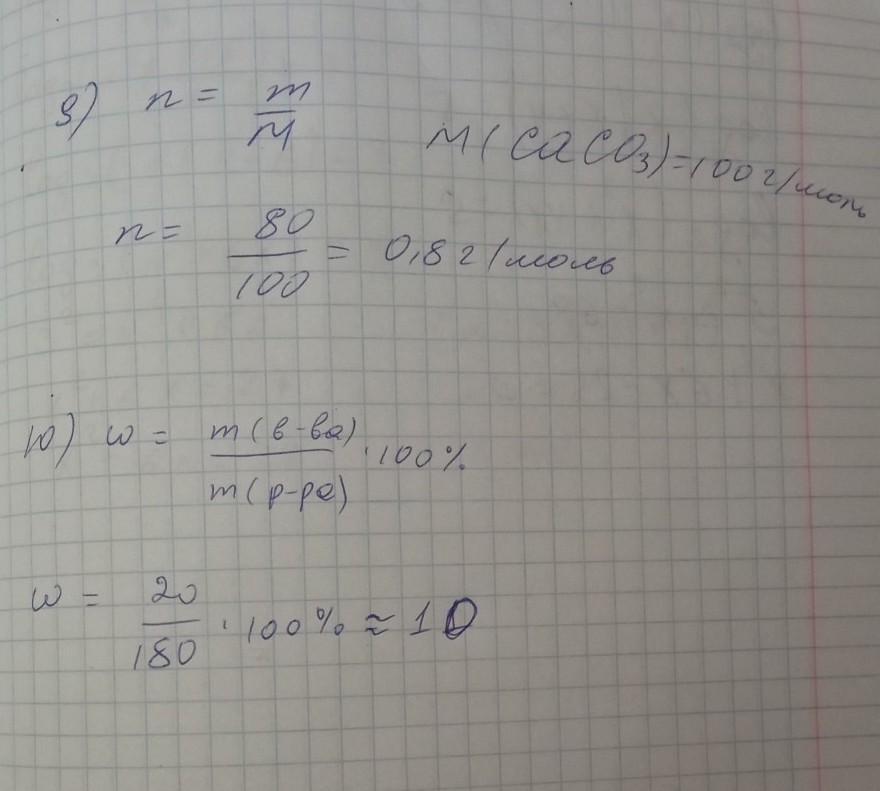 9) n = m/M
M(CaCO₃)=100 г/моль
n = 80/100 = 0,8 г/моль
10) ω = m(в-ва)/m(р-ра) · 100%
ω = 20/180 · 100% ≈ 10